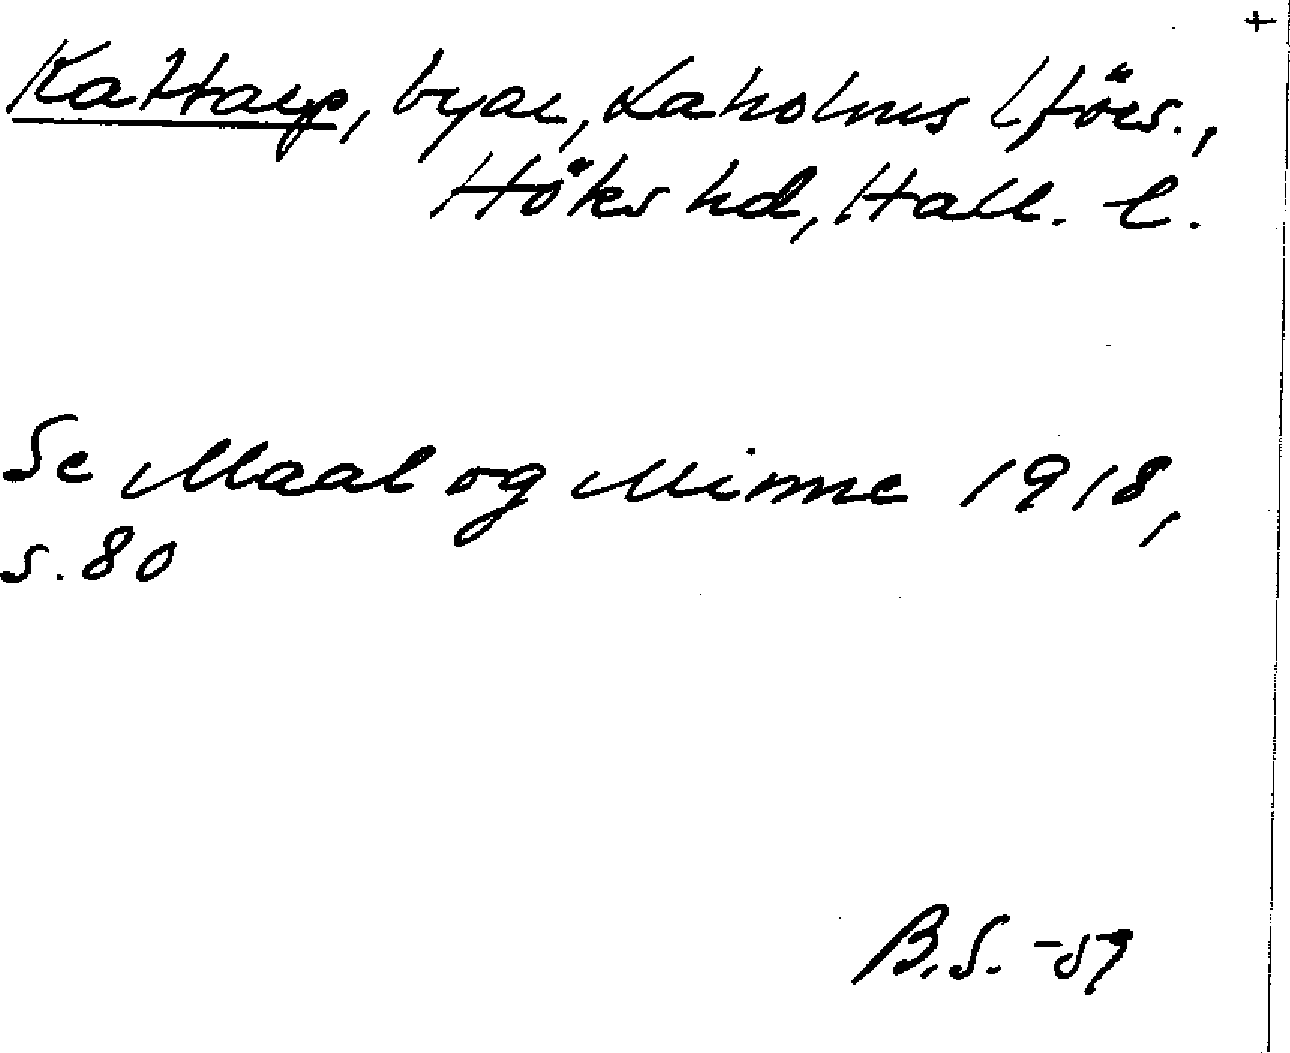 +
Kattarp, byar, Laholms lförs.,
Höks hd, Hall. l.
Se Maal og Minne 1918,
s. 80
B.S. -59